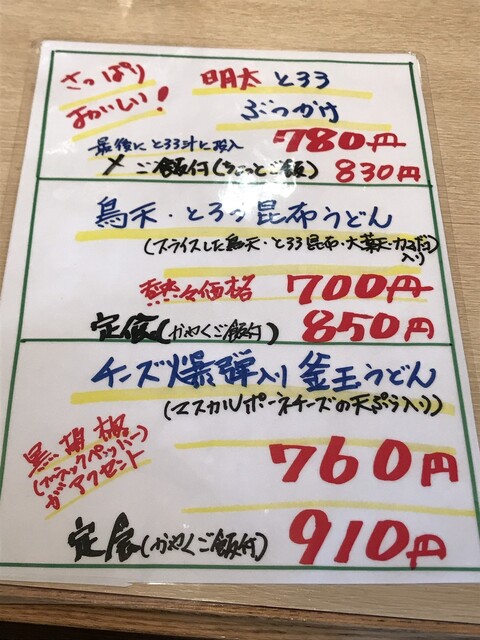 さっぱり
おいしい!
明太 とろろ
ぶっかけ
780円
最後に とろろ汁に投入
ご飯付(ちょっとご飯) 830円
鳥天・とろろ昆布うどん
(スライスした鳥天・とろろ昆布・大葉天・カマボコ入り)
熱々価格 700円
定食(かやくご飯付) 850円
チーズ爆弾入り 釜玉うどん
(マスカルポーネチーズの天ぷら入り)
黒胡椒
(ブラックペッパー)
がアクセント
760円
定食(かやくご飯付) 910円